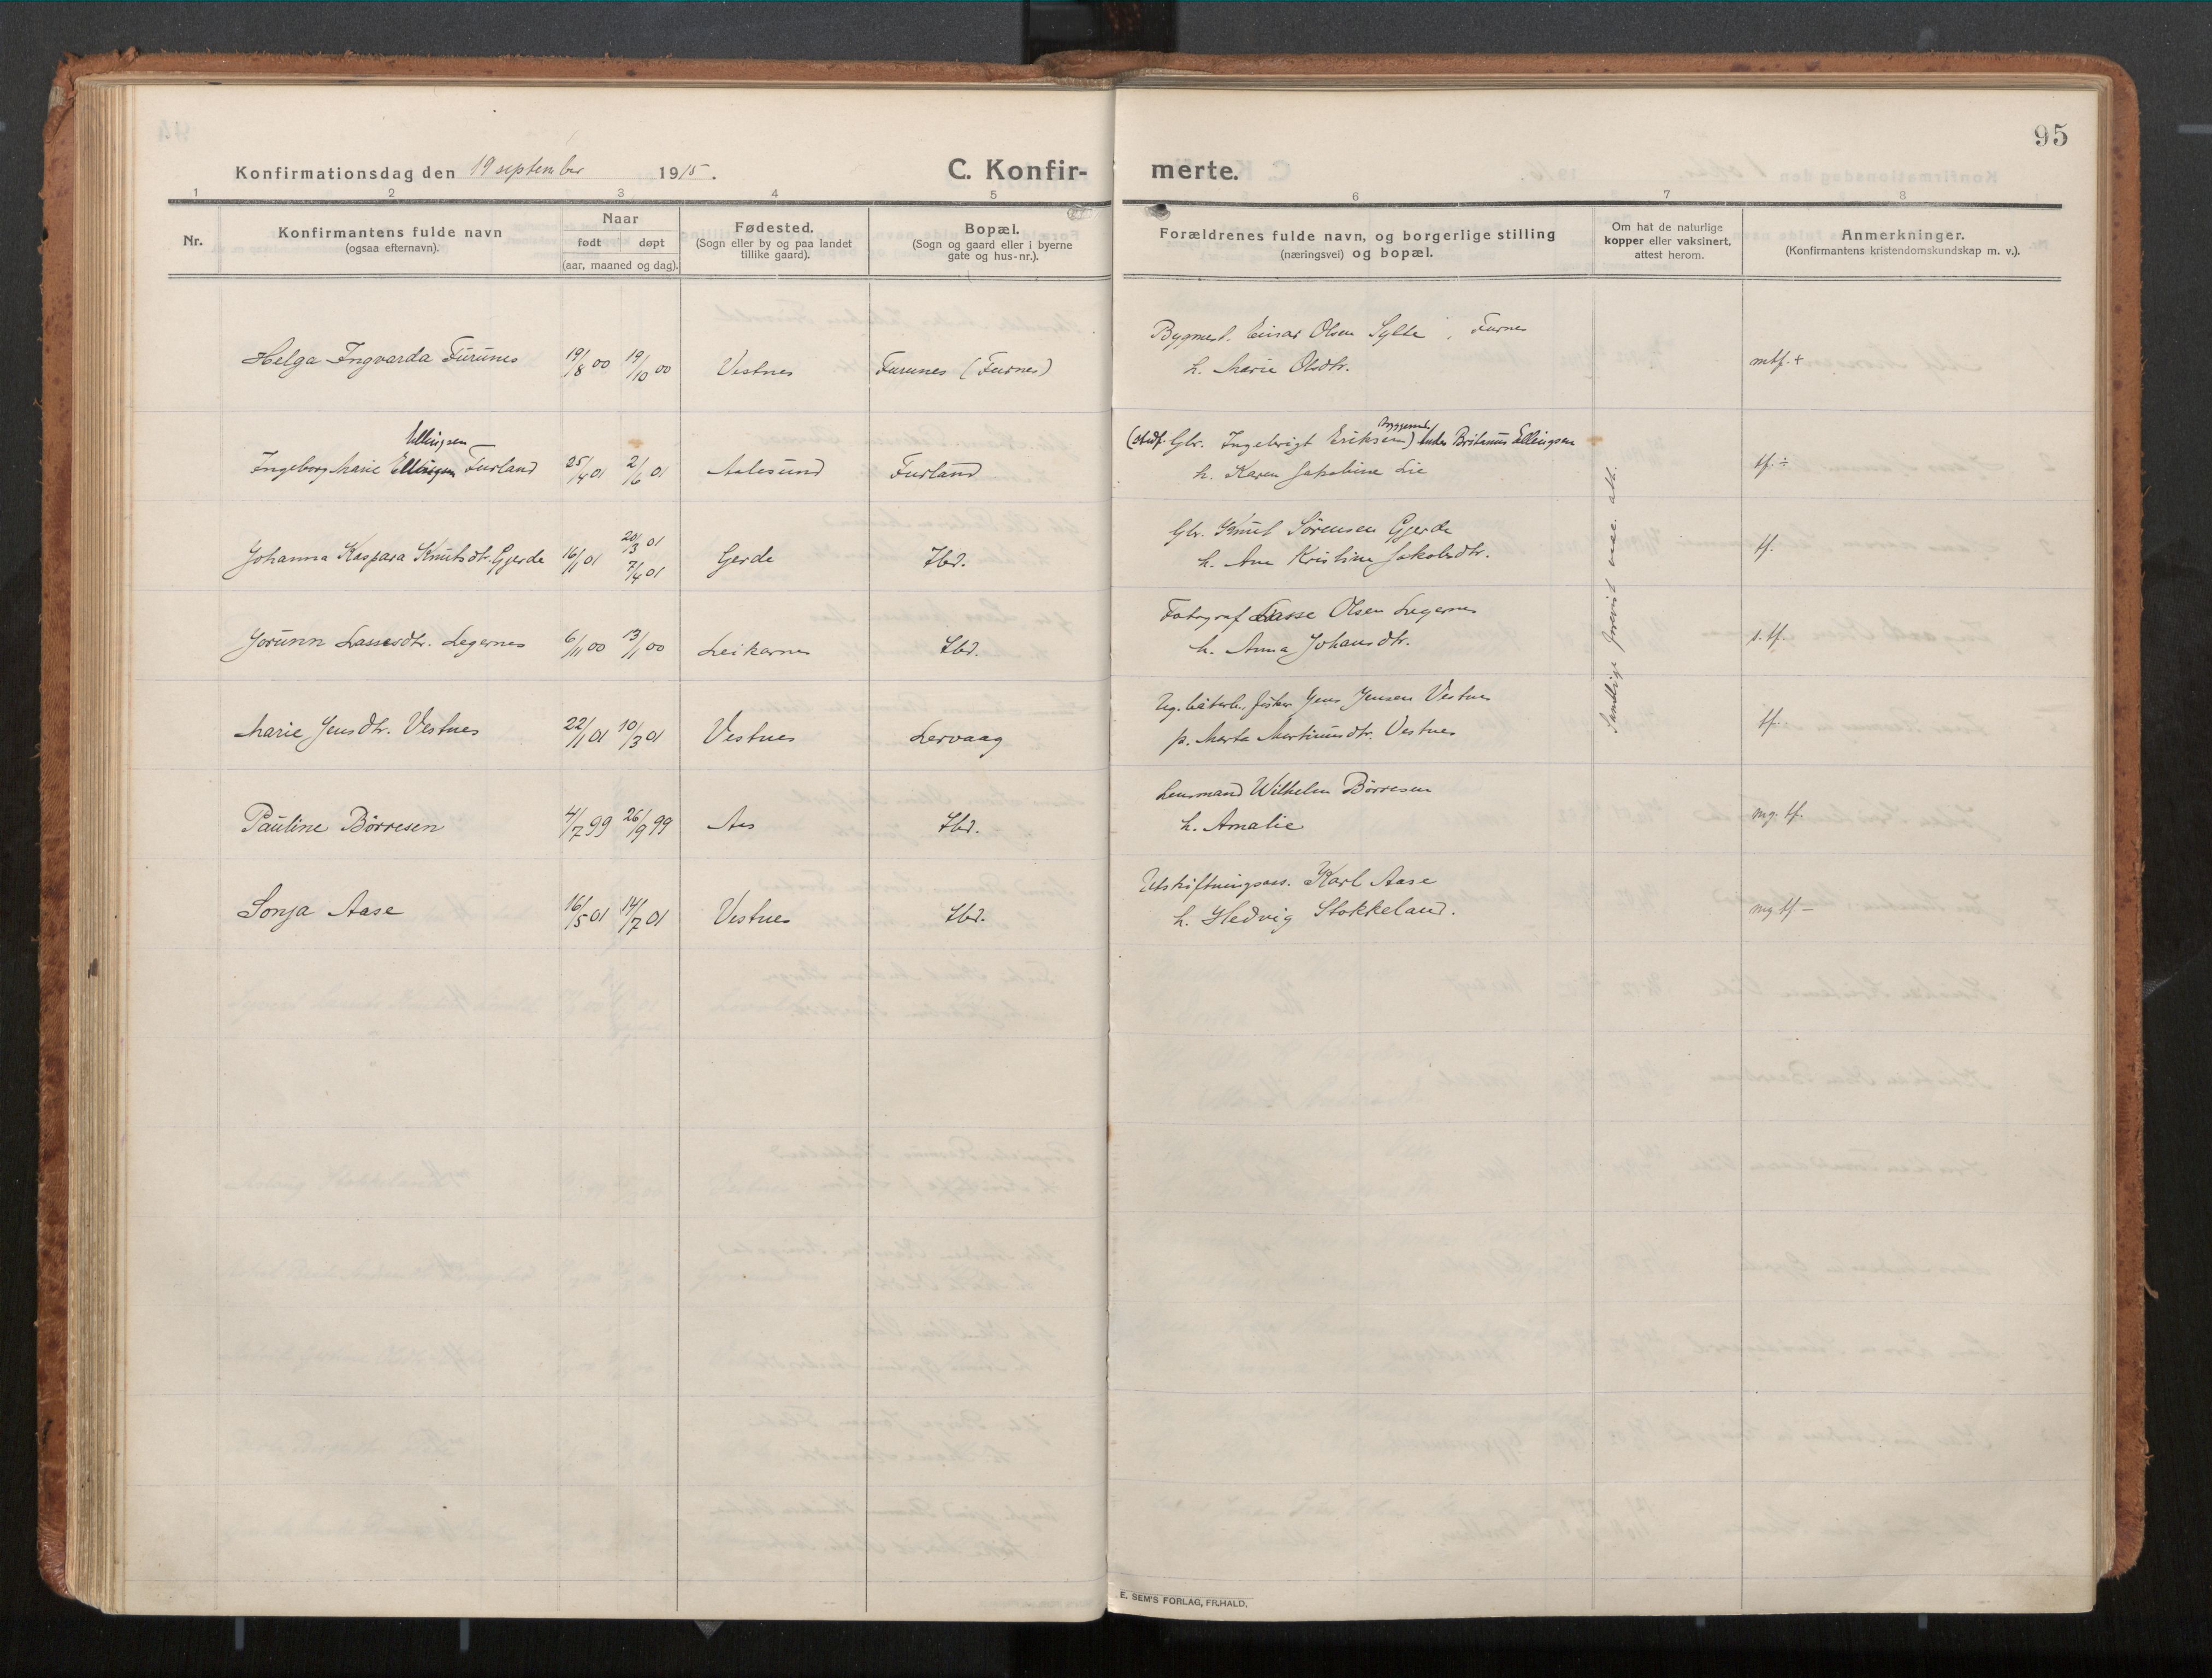 95
Konfirmationsdag den 19 september 1915.
C. Konfir- merte.
1 2 3 4 5 6 7 8
Nr.
Konfirmantens fulde navn
(ogsaa efternavn).
Naar
født døpt
(aar, maaned og dag).
Fødested.
(Sogn eller by og paa landet
tillike gaard).
Bopæl.
(Sogn og gaard eller i byerne
gate og hus-nr.).
Forældrenes fulde navn, og borgerlige stilling
(næringsvei) og bopæl.
Om hat de naturlige
kopper eller vaksinert,
attest herom.
Anmerkninger.
(Konfirmantens kristendomskundskap m. v.).
Helga Ingvarda Furunes 19/8 00 19/10 00 Vestnes Furunes (Furnes) Bygmest. Einar Olsen Sylte, Furnes
h. Marie Olsdtr. mtf. +
Ellingsen
Ingeborg Marie Ellingsen Furland 25/4 01 2/6 01 Aalesund Furland (stedf. Gbr. Ingebrigt Eriksen) Anders Britanus Ellingsen
h. Karen Jakobine Lie tf. ÷
Johanna Kaspara Knutsdtr. Gjerde 16/1 01 20/3 01 7/4 01 Gerde Ibd. Gbr. Knut Sørensen Gjerde
h. Ane Kristine Jakobsdtr. tf.
Jorunn Lassesdtr. Legernes 6/11 00 13/1 00 Leikarnes Ibd. Fotograf Lasse Olsen Legernes
h. Anna Johansdtr. s. tf.
Marie Jensdtr. Vestnes 22/1 01 10/3 01 Vestnes Lervaag Ug. fisker Jens Jensen Vestnes
p. Marta Martinusdtr. Vestnes tf. -
Pauline Börresen 4/7 99 26/9 99 Aas Ibd. Lensmand Wilhelm Börresen
h. Amalie mg. tf.
Sonja Aase 16/5 01 14/7 01 Vestnes Ibd. Utskiftningsass. Karl Aase
h. Hedvig Stokkeland. mg tf –
Samtlige forevist vac. att.
E. SEM'S FORLAG, FR.HALD.